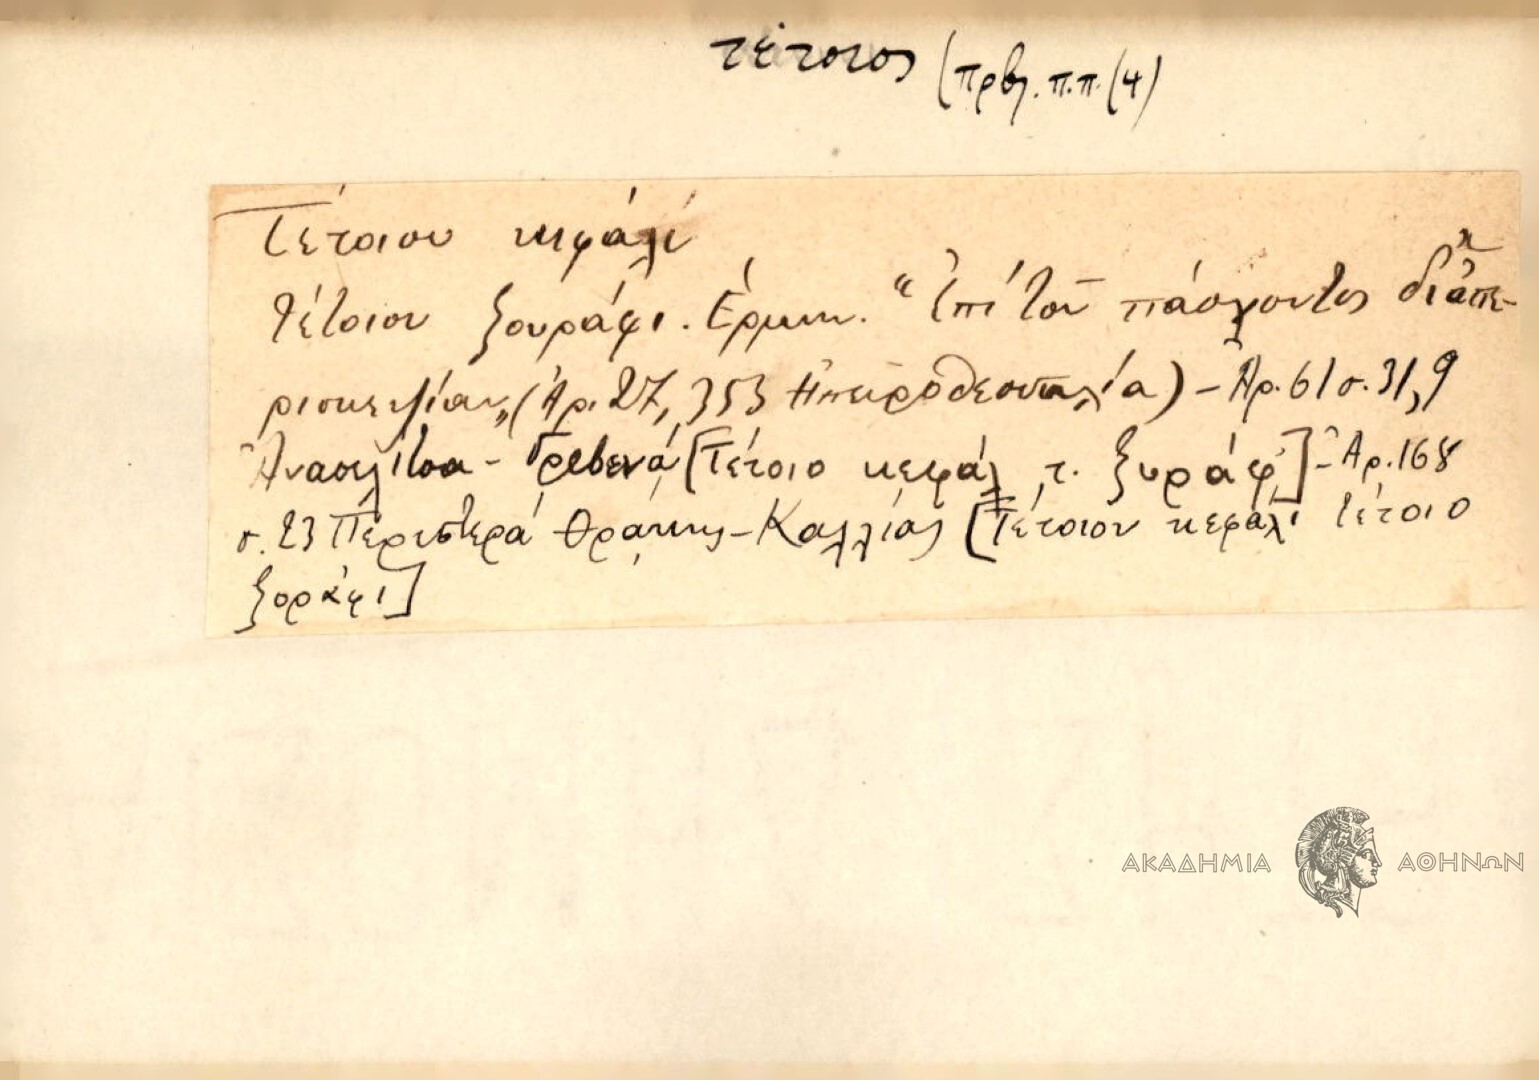 τέτοιος (πρβλ. π.π. (4)
Τέτοιου κιφάλι
τέτοιου ξουράφι. Ἑρμην. "Ἐπὶ τοῦ πάσχοντος δι' ἀπε-
ρισκεψίαν" (Ἀρ. 27, 353 Ἠπειροθεσσαλία) - Ἀρ. 61 σ. 31,9
Ἀνασελίτσα - Γρεβενά [Τέτοιο κεφάλ τ. ξυράφ'] - Ἀρ. 168
σ. 23 Περιστερά Θράκης - Καλλίας [Τέτοιου κεφάλι τέτοιο
ξοράφι]
ΑΚΑΔΗΜΙΑ ΑΘΗΝΩΝ